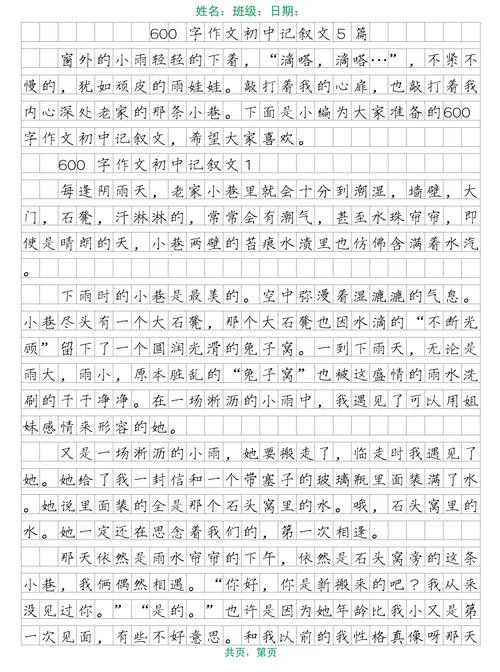 姓名：班级：日期：
600 字作文初中记叙文5 篇
窗外的小雨轻轻的下着，“滴嗒，滴嗒…”，不紧不
慢的，犹如顽皮的雨娃娃。敲打着我的心扉，也敲打着我
内心深处老家的那条小巷。下面是小编为大家准备的600
字作文初中记叙文，希望大家喜欢。
600 字作文初中记叙文1
每逢阴雨天，老家小巷里就会十分到潮湿，墙壁，大
门，石凳，汗淋淋的，常常会有潮气，甚至水珠帘帘，即
使是晴朗的天，小巷两壁的苔痕水渍里也仿佛含满着水汽
。
下雨时的小巷是最美的。空中弥漫着湿漉漉的气息。
小巷尽头有一个大石凳，那个大石凳也因水滴的“不断光
顾”留下了一个圆润光滑的兔子窝。一到下雨天，无论是
雨大，雨小，原本脏乱的“兔子窝”也被这盛情的雨水洗
刷的干干净净。在一场淅沥的小雨中，我遇见了可以用姐
妹感情来形容的她。
又是一场淅沥的小雨，她要搬走了，临走时我遇见了
她。她给了我一封信和一个带塞子的玻璃瓶里面装满了水
。她说里面装的全是那个石头窝里的水。哦，石头窝里的
水。她一定还在思念着我们的，第一次相逢。
那天依然是雨水帘帘的下午，依然是石头窝旁的这条
小巷，我俩偶然相遇。“你好，你是新搬来的吧？我从来
没见过你。”“是的。”也许是因为她年龄比我小又是第
一次见面，有些不好意思。和我以前的我性格真像呀那天
共页，第页